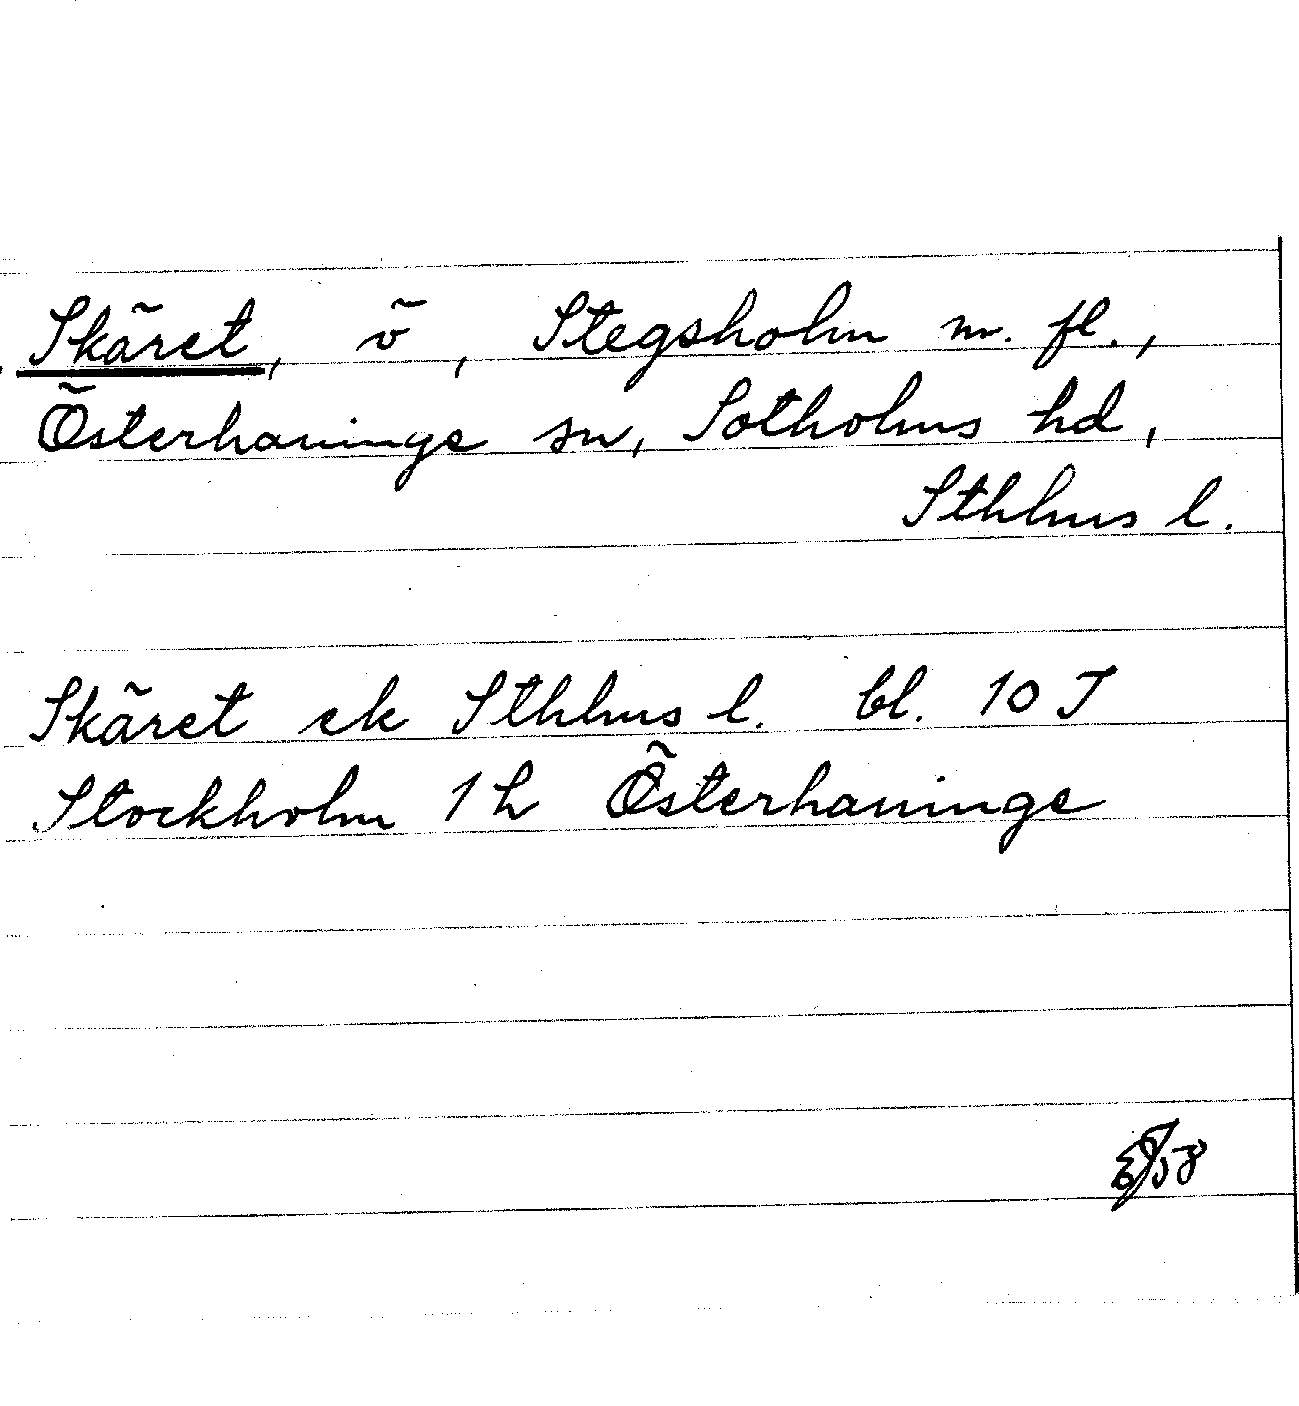 Skäret, ö, Stegsholm m. fl.,
Österhaninge sn, Sotholms hd,
Sthlms l.
Skäret ek Sthlms l. bl. 10 J
Stockholm 1 h Österhaninge